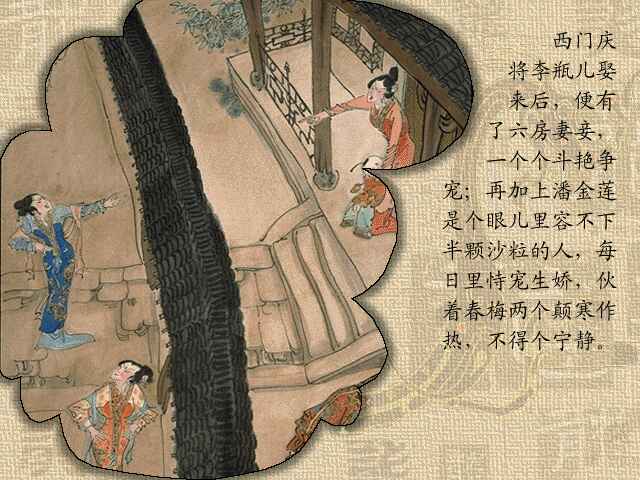 西门庆
将李瓶儿娶
来后，便有
了六房妻妾，
一个个斗艳争
宠；再加上潘金莲
是个眼儿里容不下
半颗沙粒的人，每
日里恃宠生娇，伙
着春梅两个颠寒作
热，不得个宁静。